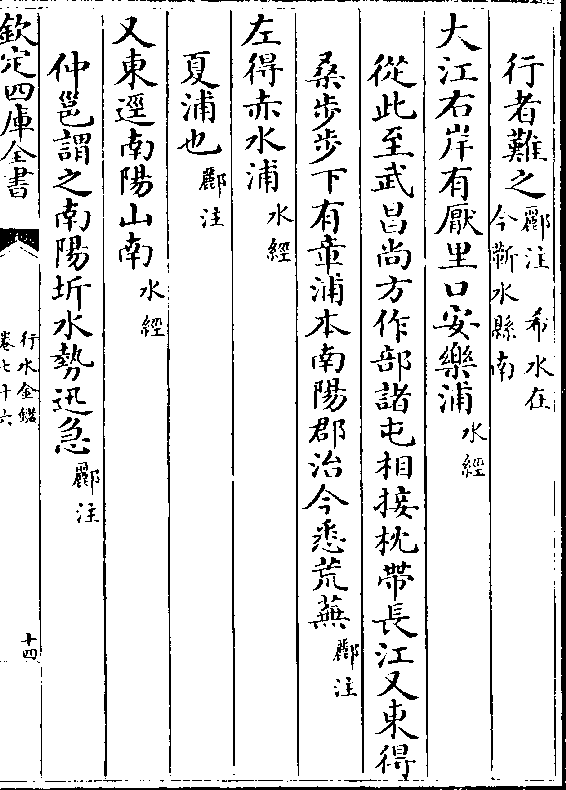 行者難之酈注希水在今蘄水縣南
大江右岸有厭里口安樂浦水經
從此至武昌尚方作部諸屯相接枕帶長江又東得
桑步步下有章浦本南陽郡治今悉荒蕪酈注
左得赤水浦水經
夏浦也酈注
又東逕南陽山南水經
仲邕謂之南陽圻水勢迅急酈注
欽定四庫全書
行水金鑑
卷七十六
十四